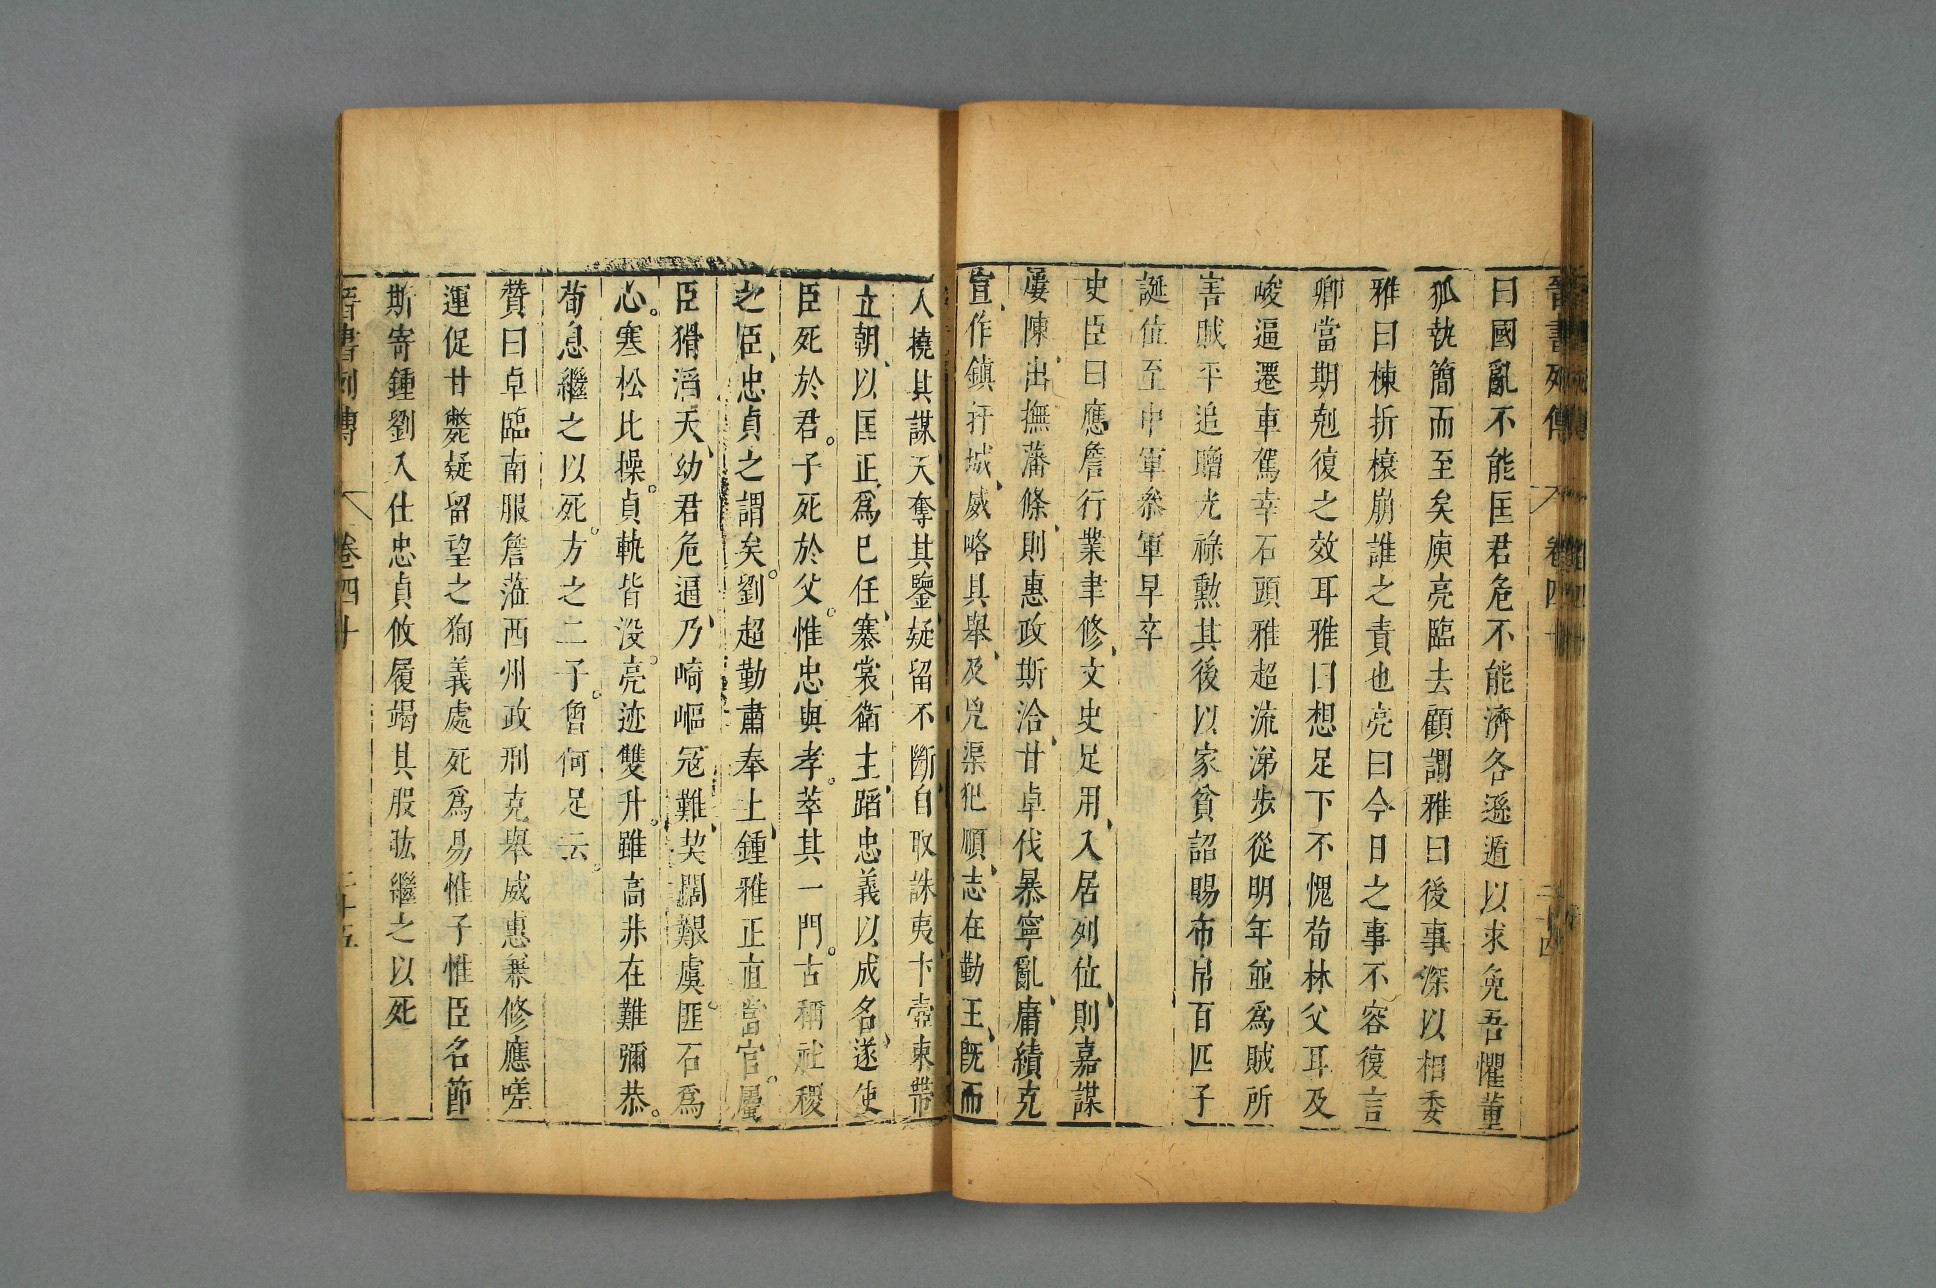 晉書列傳 卷四十 二十四
曰國亂不能匡君危不能濟各遜遁以求免吾懼董
狐執簡而至矣庾亮臨去顧謂雅曰後事深以相委
雅曰棟折榱崩誰之責也亮曰今日之事不容復言
卿當期剋復之效耳雅曰想足下不愧荀林父耳及
峻逼遷車駕幸石頭雅超流涕步從明年並爲賊所
害賊平追贈光祿勲其後以家貧詔賜布帛百匹子
誕位至中軍叅軍早卒
史臣曰應詹行業聿修、文史足用、入居列位、則嘉謀
屢陳、出撫藩條、則惠政斯洽、甘卓伐暴寧亂、庸績克
宣、作鎮扞城、威略具舉、及兇渠犯順、志在勤王、旣而
人撓其謀、天奪其鑒、疑留不斷、自取誅夷、卞壼束帶
立朝、以匡正爲已任、褰裳衛主、蹈忠義以成名、遂使
臣死於君。子死於父。惟忠與孝。萃其一門。古稱社稷
之臣、忠貞之謂矣。劉超勤肅奉上、鍾雅正直當官。屬
臣猾滔天、幼君危逼、乃崎嶇冦難、契闊艱虞。匪石爲
心。寒松比操。貞軌皆没。亮迹雙升。雖高赤在難彌恭。
荀息繼之以死。方之二子。曾何足云。
贊曰卓臨南服詹蒞西州政刑克舉威惠兼修應嗟
運促甘斃疑留望之狥義處死爲易惟子惟臣名節
斯寄鍾劉入仕忠貞攸履竭其股肱繼之以死
晉書列傳 卷四十 二十五